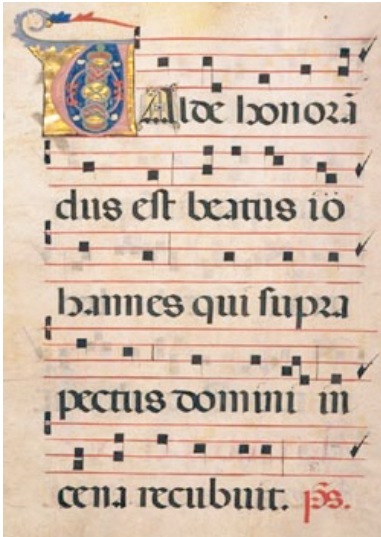 VAlde honorã
dus est beatus io
hannes qui supra
pectus domini in
cena recubuit. p̃s.